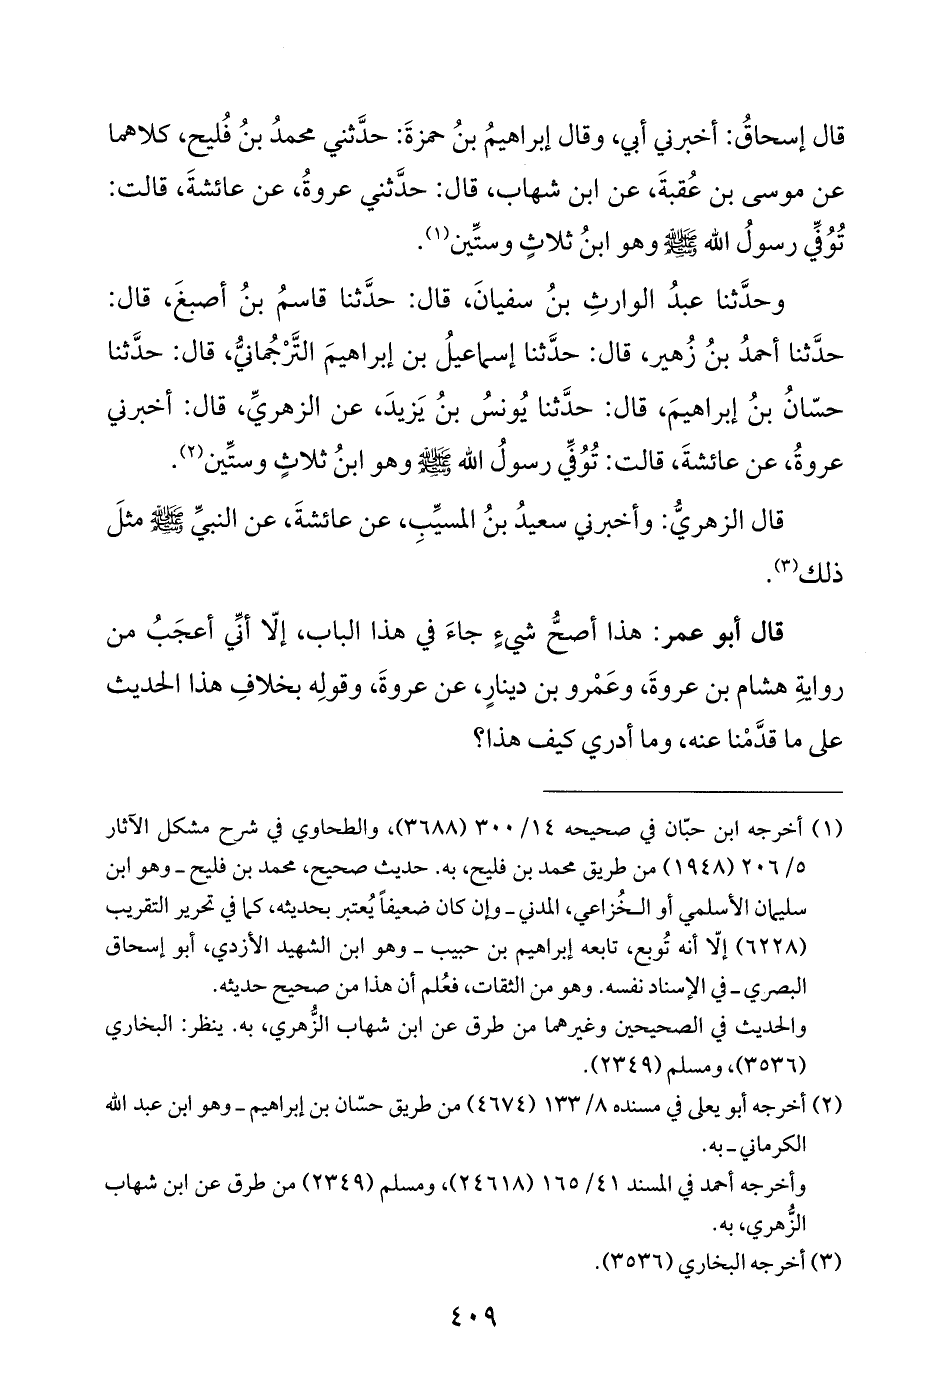 قال إسحاقُ: أخبرني أبي، وقال إبراهيمُ بنُ حمزةَ: حدَّثني محمدُ بنُ فُليح، كلاهما
عن موسى بن عُقبةَ، عن ابن شهاب، قال: حدَّثني عروةُ، عن عائشةَ، قالت:
تُوُفِّي رسولُ الله ﷺ وهو ابنُ ثلاثٍ وستِّين(١).
وحدَّثنا عبدُ الوارثِ بنُ سفيانَ، قال: حدَّثنا قاسمُ بنُ أصبغَ، قال:
حدَّثنا أحمدُ بنُ زُهير، قال: حدَّثنا إسماعيلُ بن إبراهيمَ التَّرْجُمانيُّ، قال: حدَّثنا
حسّانُ بنُ إبراهيمَ، قال: حدَّثنا يُونسُ بنُ يَزيدَ، عن الزهريِّ، قال: أخبرني
عروةُ، عن عائشةَ، قالت: تُوُفِّي رسولُ الله ﷺ وهو ابنُ ثلاثٍ وستِّين(٢).
قال الزهريُّ: وأخبرني سعيدُ بنُ المسيِّبِ، عن عائشةَ، عن النبيِّ ﷺ مثلَ
ذلك(٣).
قال أبو عمر: هذا أصحُّ شيءٍ جاءَ في هذا الباب، إلّا أنِّي أعجَبُ من
روايةِ هشام بن عروةَ، وعَمْرو بن دينارٍ، عن عروةَ، وقولِه بخلافِ هذا الحديث
على ما قدَّمْنا عنه، وما أدري كيف هذا؟
(١) أخرجه ابن حبّان في صحيحه ١٤/ ٣٠٠ (٣٦٨٨)، والطحاوي في شرح مشكل الآثار
٥/ ٢٠٦ (١٩٤٨) من طريق محمد بن فليح، به. حديث صحيح، محمد بن فليح ـ وهو ابن
سليمان الأسلمي أو الـخُزاعي، المدني ـ وإن كان ضعيفاً يُعتبر بحديثه، كما في تحرير التقريب
(٦٢٢٨) إلّا أنه تُوبع، تابعه إبراهيم بن حبيب ـ وهو ابن الشهيد الأزدي، أبو إسحاق
البصري ـ في الإسناد نفسه. وهو من الثقات، فعُلم أن هذا من صحيح حديثه.
والحديث في الصحيحين وغيرهما من طرق عن ابن شهاب الزُّهري، به. ينظر: البخاري
(٣٥٣٦)، ومسلم (٢٣٤٩).
(٢) أخرجه أبو يعلى في مسنده ٨/ ١٣٣ (٤٦٧٤) من طريق حسّان بن إبراهيم ـ وهو ابن عبد الله
الكرماني ـ به.
وأخرجه أحمد في المسند ٤١/ ١٦٥ (٢٤٦١٨)، ومسلم (٢٣٤٩) من طرق عن ابن شهاب
الزُّهري، به.
(٣) أخرجه البخاري (٣٥٣٦).
٤٠٩